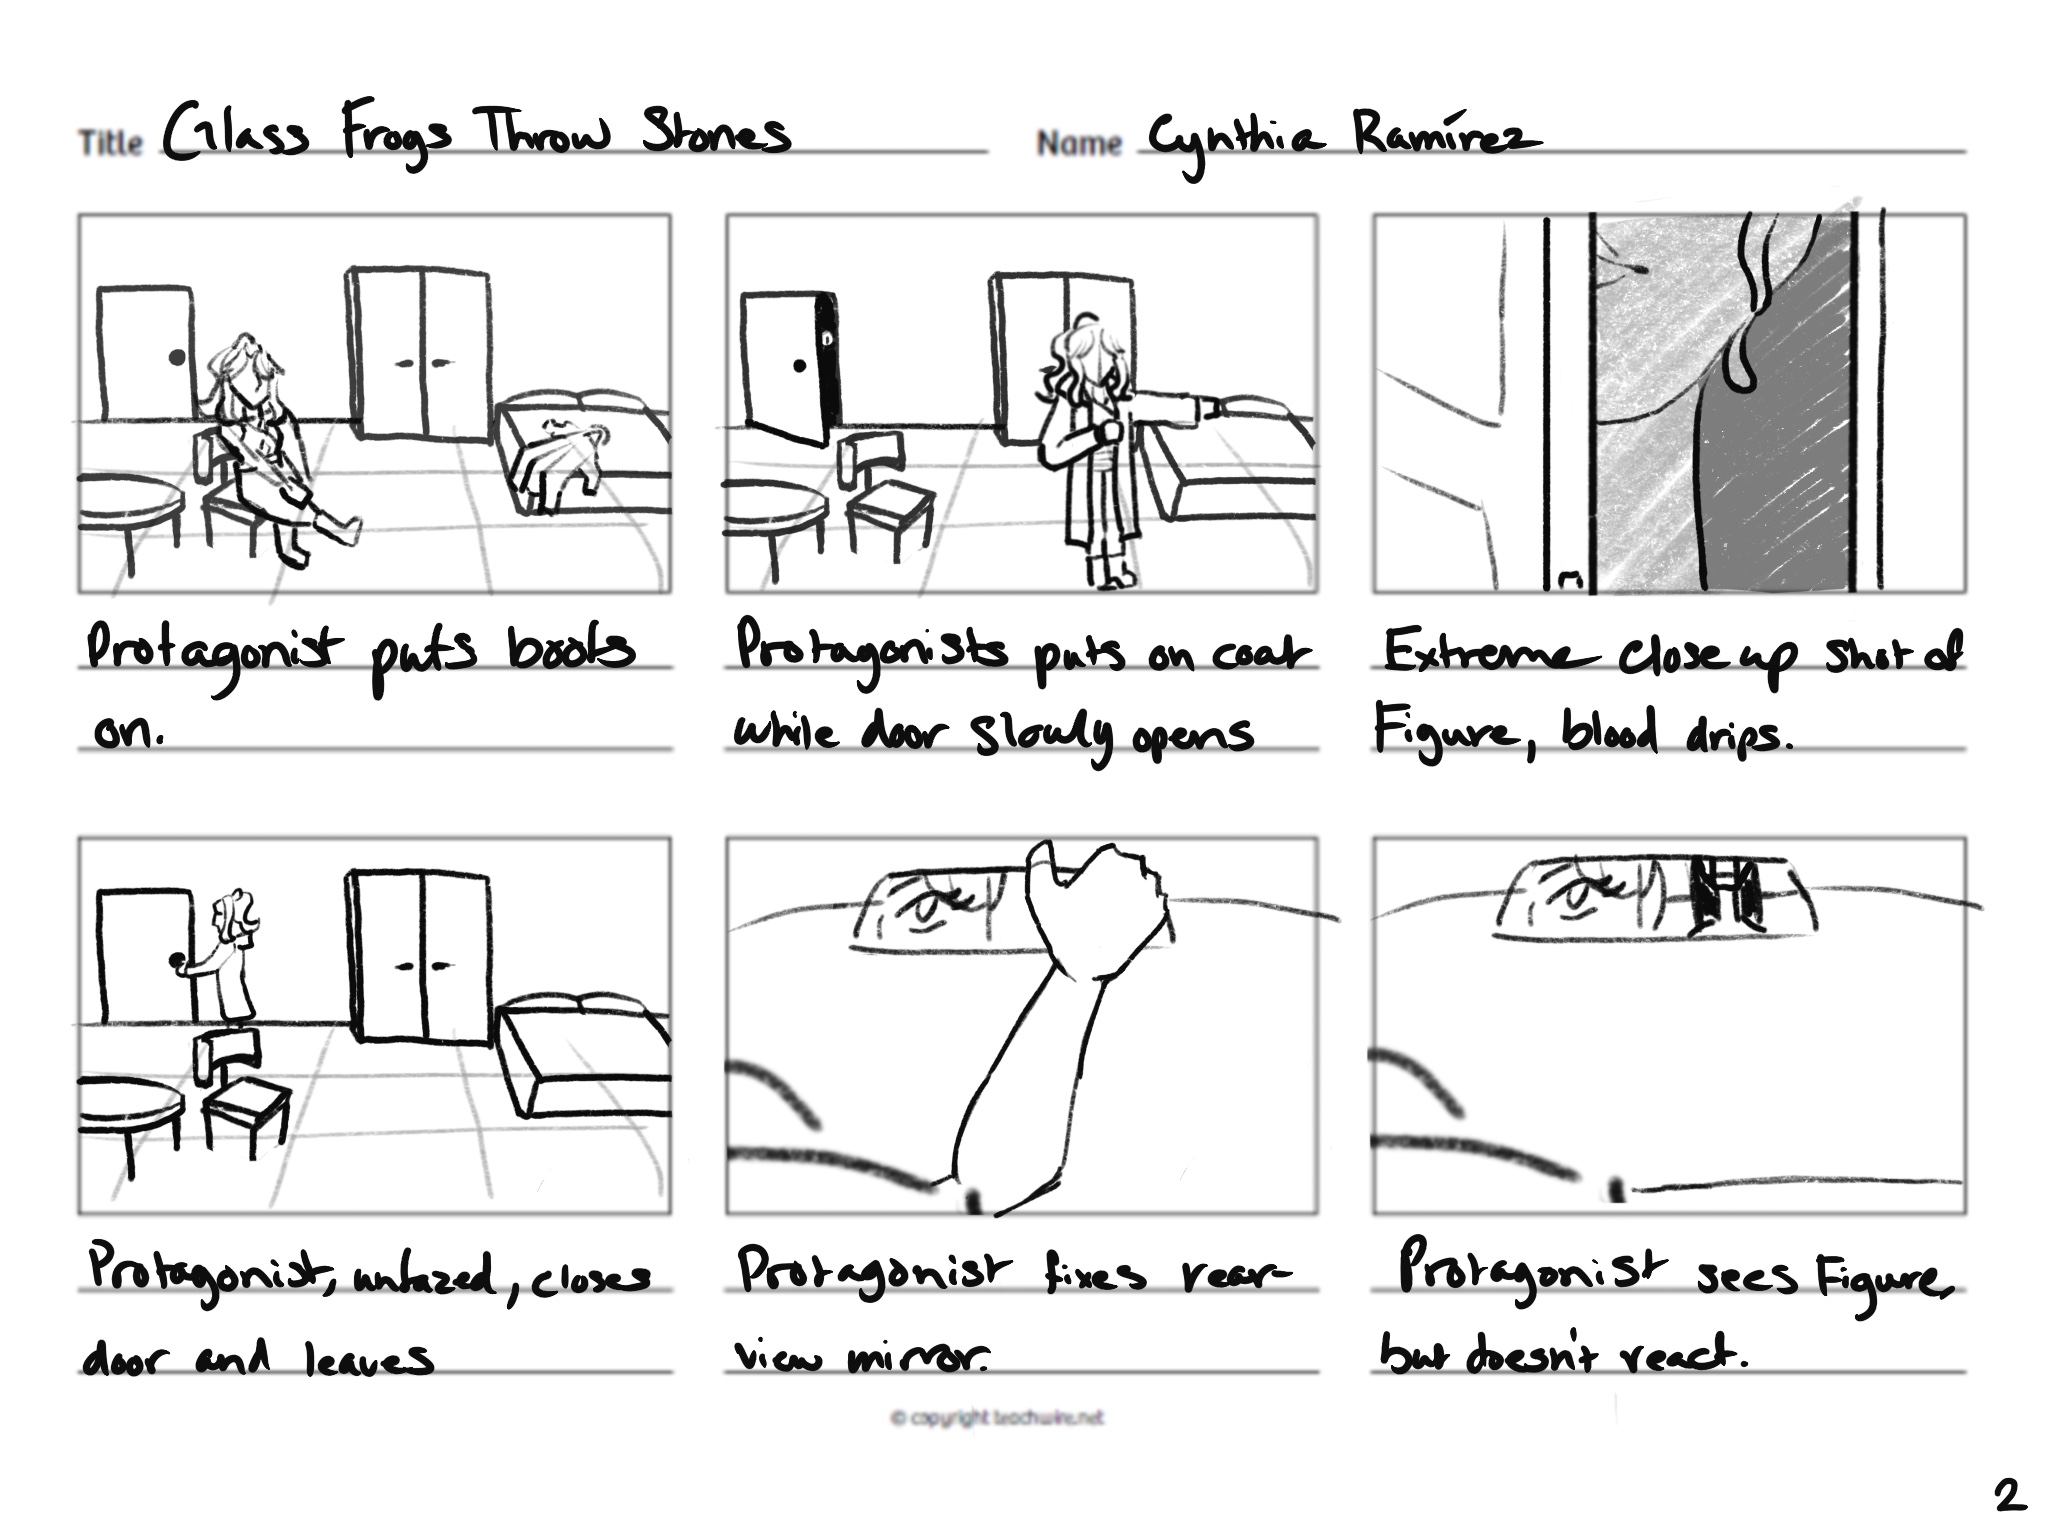 Title Glass Frogs Throw Stones
Name Cynthia Ramírez
Protagonist puts boots
on.
Protagonists puts on coat
while door slowly opens
Extreme close up shot of
Figure, blood drips.
Protagonist, unfazed, closes
door and leaves
Protagonist fixes rear-
view mirror.
Protagonist sees Figure,
but doesn't react.
© copyright teachwire.net
2